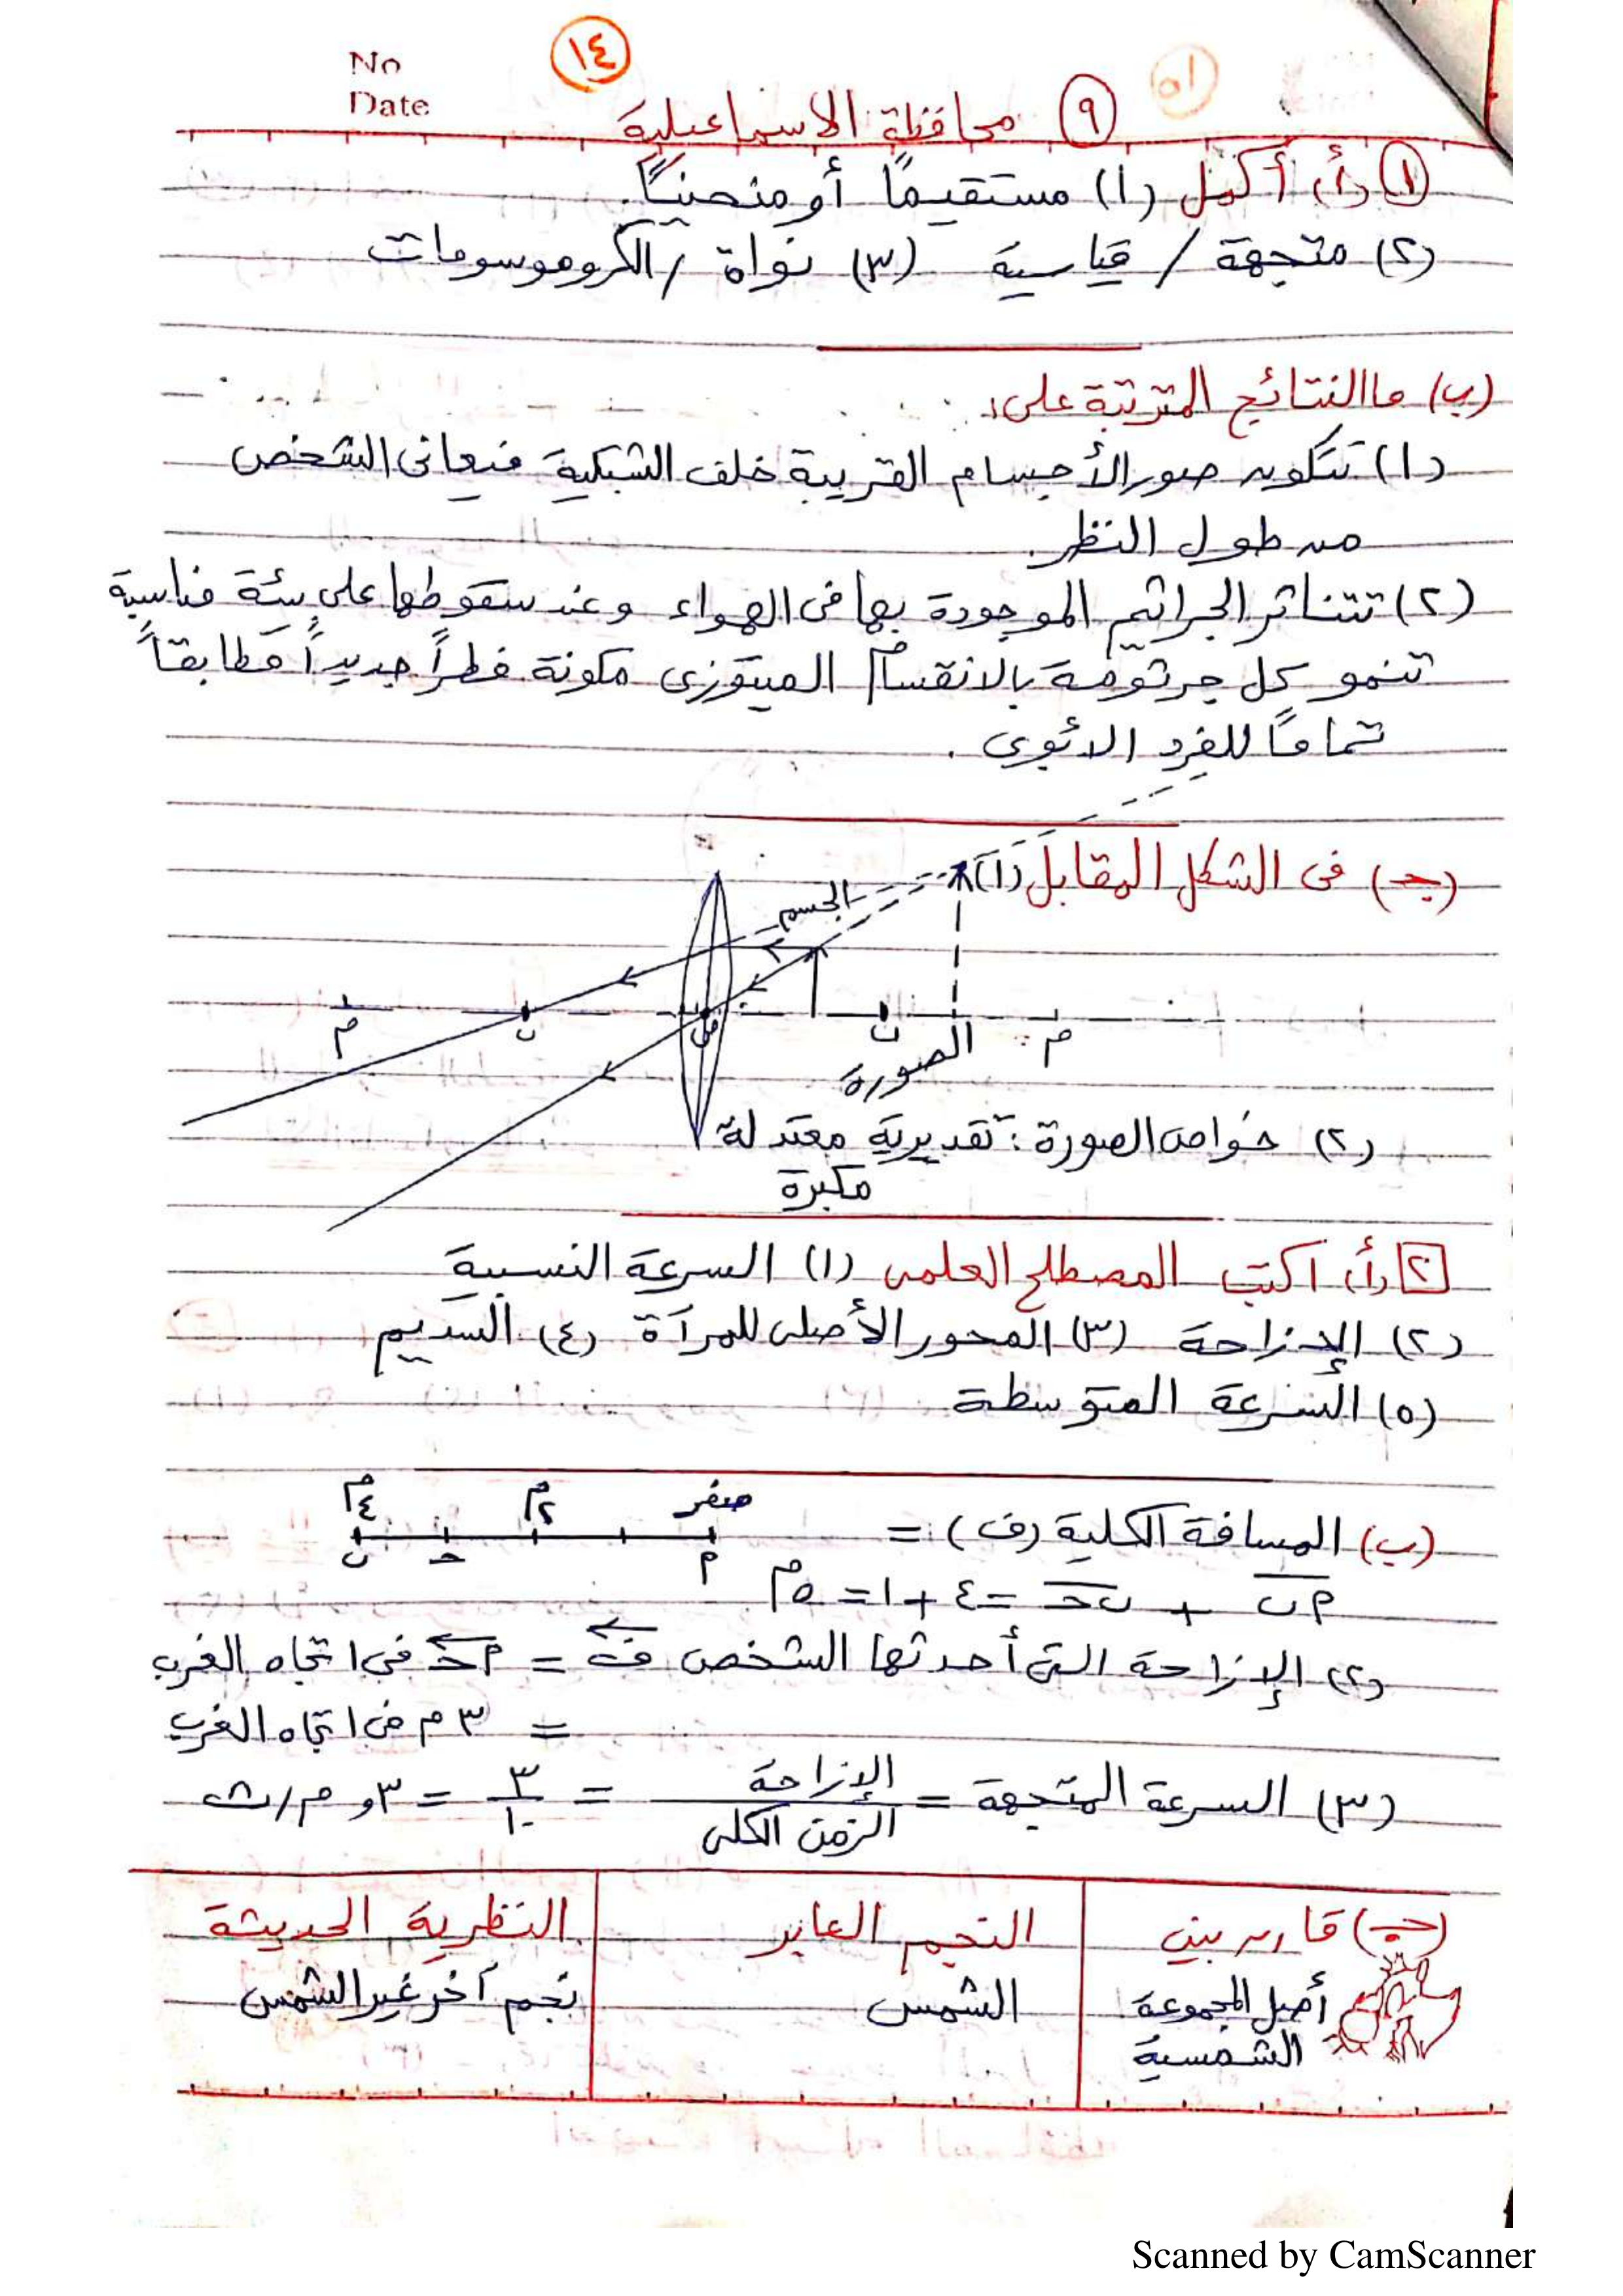 No
Date
١٤
١٥
٩ محافظة الاسماعيلية
١ (أ) أكمل (١) مستقيمًا أو منحنيًا.
(٢) متجهة / قياسية (٣) نواة / الكروموسومات
(ب) ما النتائج المترتبة على:
(١) تتكون صور الأجسام القريبة خلف الشبكية فيعانى الشخص
من طول النظر.
(٢) تتناثر الجراثيم الموجودة بها فى الهواء وعند سقوطها على بيئة مناسبة
تنمو كل جرثومة بالانقسام الميتوزى مكونة فطراً جديداً مطابقاً
تماماً للفرد الأبوى.
(جـ) فى الشكل المقابل (١)
الجسم
م ن م ن م
الصورة
(٢) خواص الصورة: تقديرية معتدلة
مكبرة
٢ (أ) اكتب المصطلح العلمى (١) السرعة النسبية
(٢) الإزاحة (٣) المحور الأصلى للمرآة (٤) السديم
(٥) السرعة المتوسطة
صفر ٢م ٤م
(ب) المسافة الكلية (ف) =
م ح ب
م ب + ب ح = ٤ + ١ = ٥م
(٢) الإزاحة التى أحدثها الشخص ف = م ح فى اتجاه الغرب
= ٣ م فى اتجاه الغرب
(٣) السرعة المتجهة = الإزاحة / الزمن الكلى = ٣ / ١٠ = ٣و م/ث
(جـ) قارن بين النجم العابر النظرية الحديثة
أصل المجموعة الشمس نجم آخر غير الشمس
الشمسية
Scanned by CamScanner